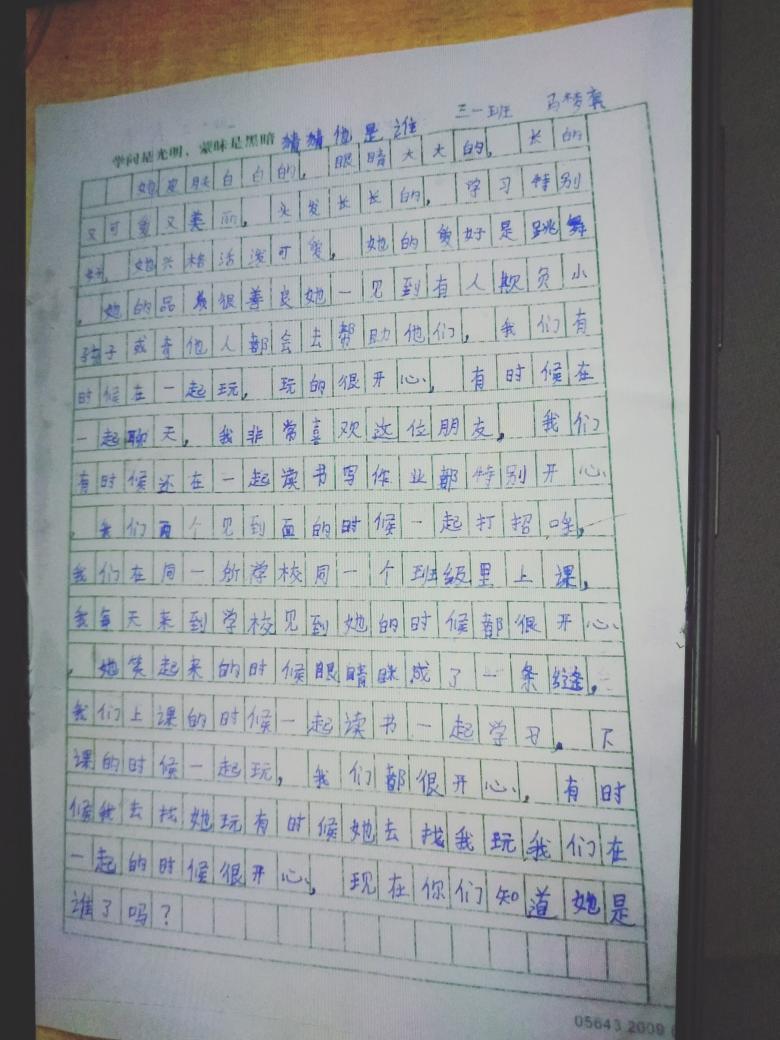 三一班 马梦
学问是光明，蒙昧是黑暗 猜猜他是谁
她皮肤白白的，眼睛大大的，长的
又可爱又美丽，头发长长的，学习特别
好，她兴格活泼可爱，她的爱好是跳舞
，她的品质很善良她一见到有人欺负小
孩子或者他人都会去帮助他们，我们有
时候在一起玩，玩的很开心，有时候在
一起聊天，我非常喜欢这位朋友，我们
有时候还在一起读书写作业都特别开心
，我们两个见到面的时候一起打招
我们在同一所学校同一个班级里上课，
我每天来到学校见到她的时候都很开心
，她笑起来的时候眼睛眯成了一条缝，
我们上课的时候一起读书一起学习，下
课的时候一起玩，我们都很开心，有时
候我去找她玩有时候她去找我玩我们在
一起的时候很开心，现在你们知道她是
谁了吗？
05643 2009